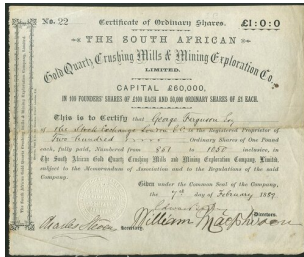 No. 22 Certificate of Ordinary Shares. £1:0:0
THE SOUTH AFRICAN
Gold Quartz Crushing Mills & Mining Exploration Co.,
LIMITED.
CAPITAL £60,000,
IN 100 FOUNDERS' SHARES OF £100 EACH AND 50,000 ORDINARY SHARES OF £1 EACH.
This is to Certify that George Ferguson Esq
of The Stock Exchange London E.C. is the Registered Proprietor of
Two hundred Ordinary Shares of One Pound
each, fully paid, Numbered from 851 to 1050 inclusive, in
The South African Gold Quartz Crushing Mills and Mining Exploration Company, Limited,
subject to the Memorandum of Association and to the Regulations of the said
Company.
Given under the Common Seal of the Company,
the 7th day of February 1889.
Directors.
William MacPherson
Charles Secretary.